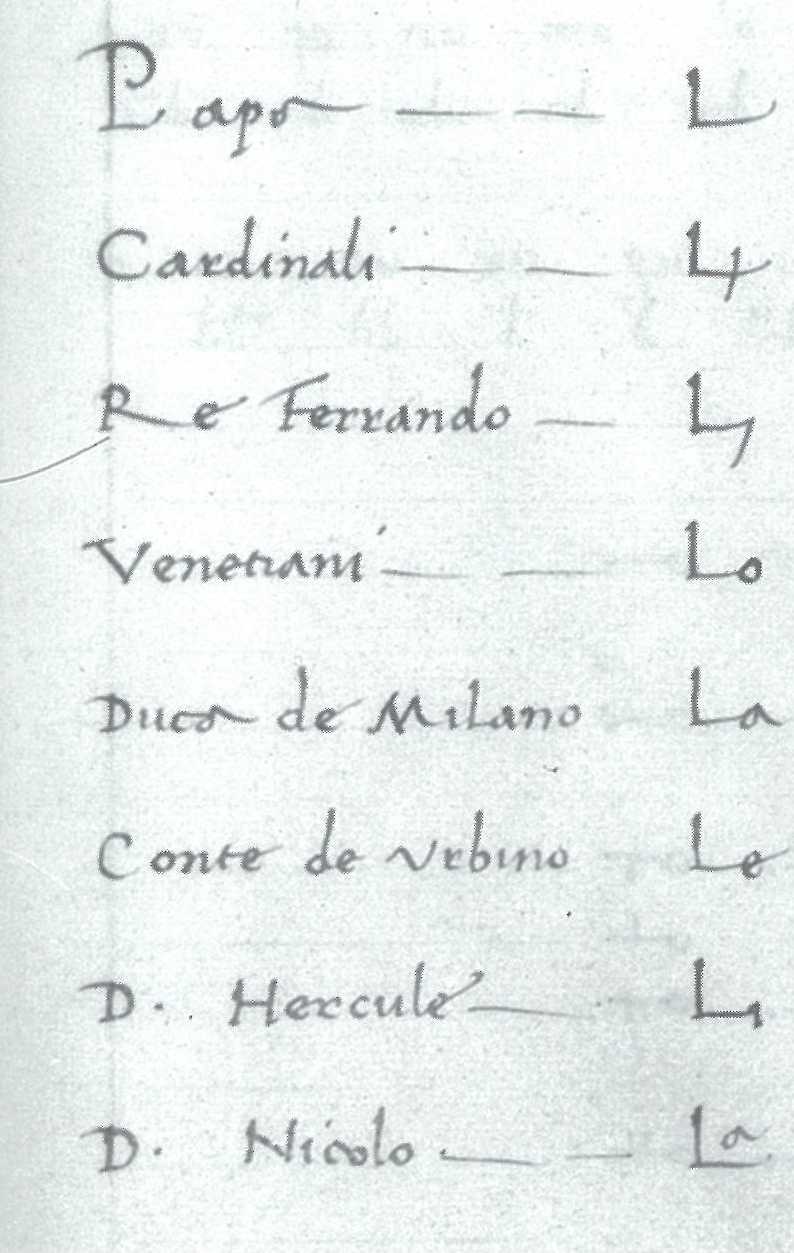 Papa — — L
Cardinali — — L
Re Ferrando — L
Venetiani — — Lo
Duca de Milano La
Conte de Urbino Le
D. Hercule — L
D. Nicolo — — La